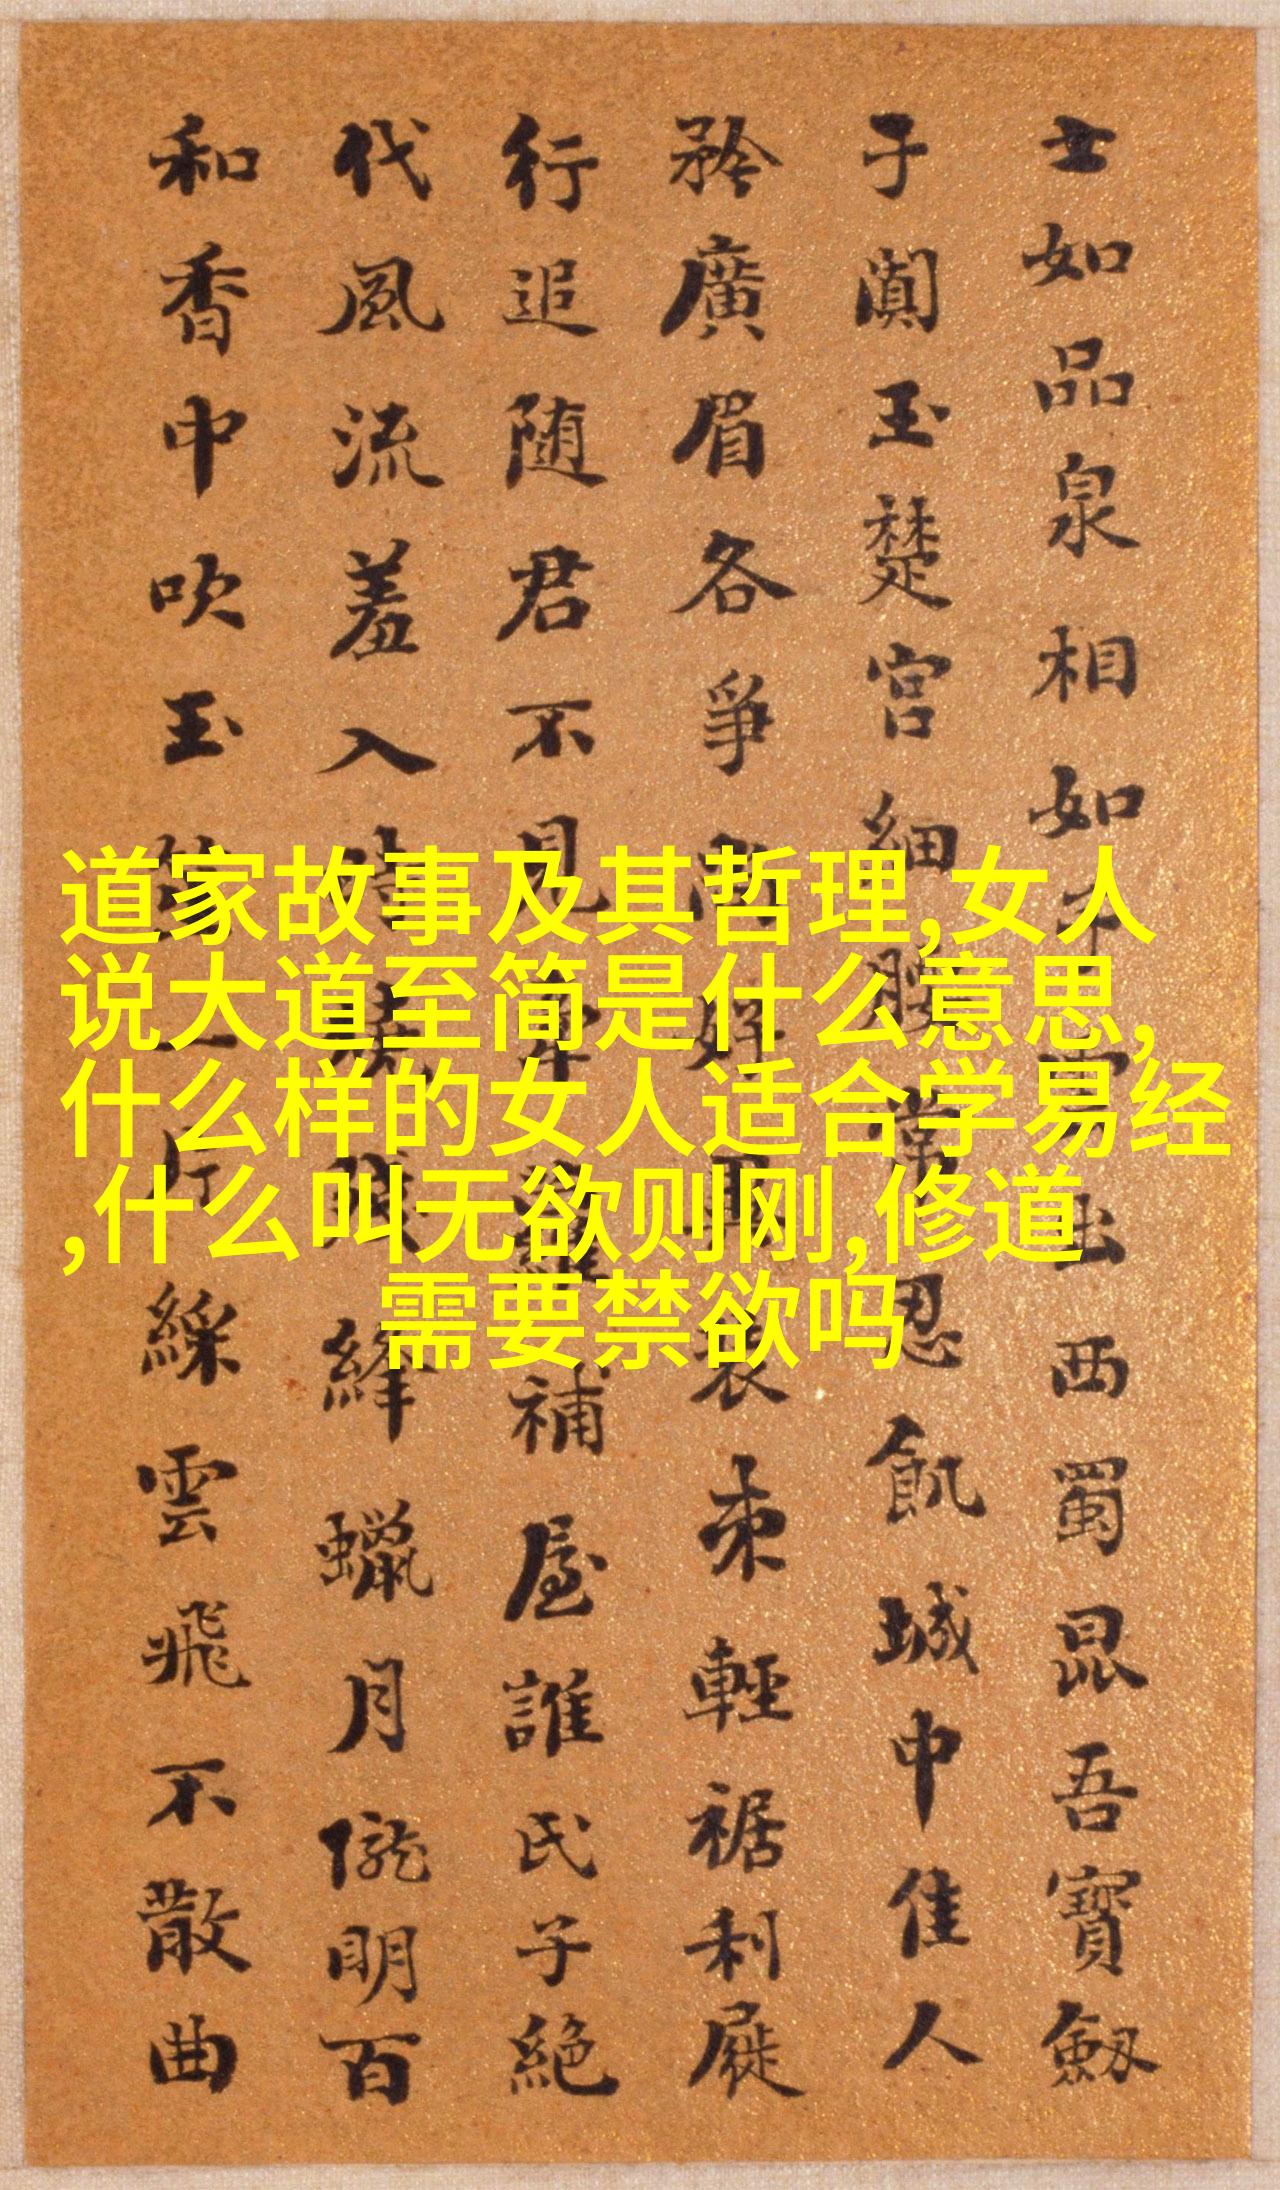 道家故事及其哲理,女人
说大道至简是什么意思,
什么样的女人适合学易经
,什么叫无欲则刚,修道
需要禁欲吗
士如品泉相如出西蜀昆吾寶劔
子闐玉楚宮細腰常忍飢城中佳人
矜廣眉各爭好裝束輕裾利屣
行追随君不見蘿補屋誰氏子絶
代風流羞入殘絳蠟月隴明百
和香中吹玉一片綵雲飛不散曲